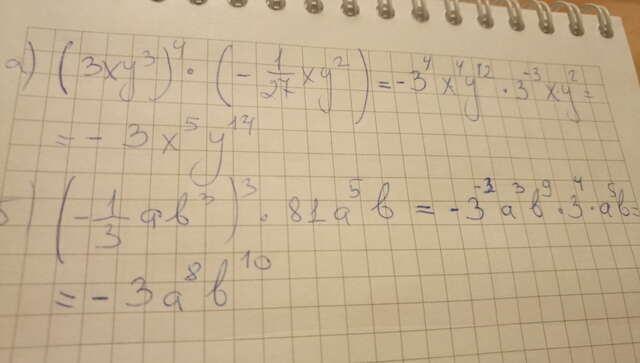 а) (3xy³)⁴ · (- 1/27 xy²) = -3⁴x⁴y¹² · 3⁻³xy² =
= - 3x⁵y¹⁴
б) (- 1/3 ab³)³ · 81a⁵b = -3⁻³a³b⁹ · 3⁴ · a⁵b =
= - 3a⁸b¹⁰